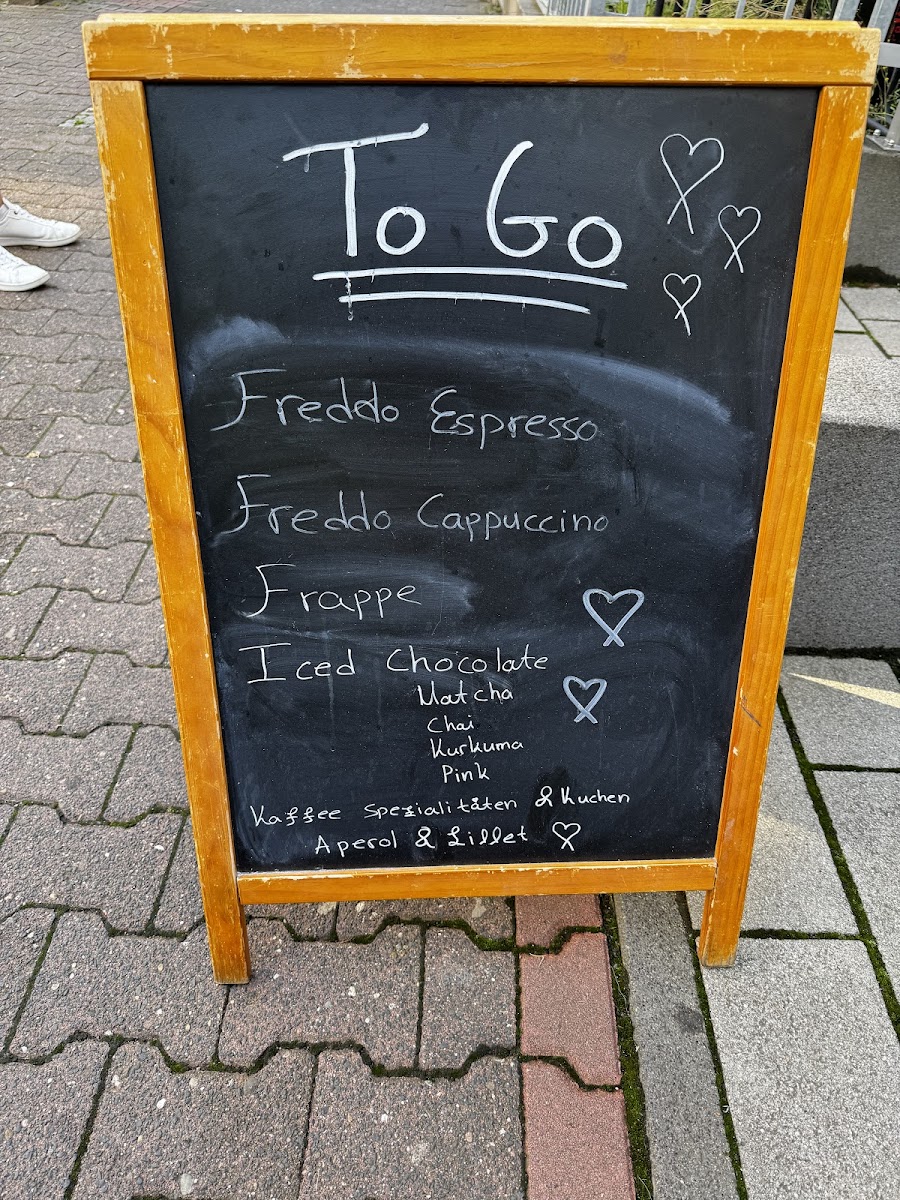 To Go
Freddo Espresso
Freddo Cappuccino
Frappe
Iced Chocolate
Matcha
Chai
Kurkuma
Pink
Kaffee spezialitäten & Kuchen
Aperol & Lillet